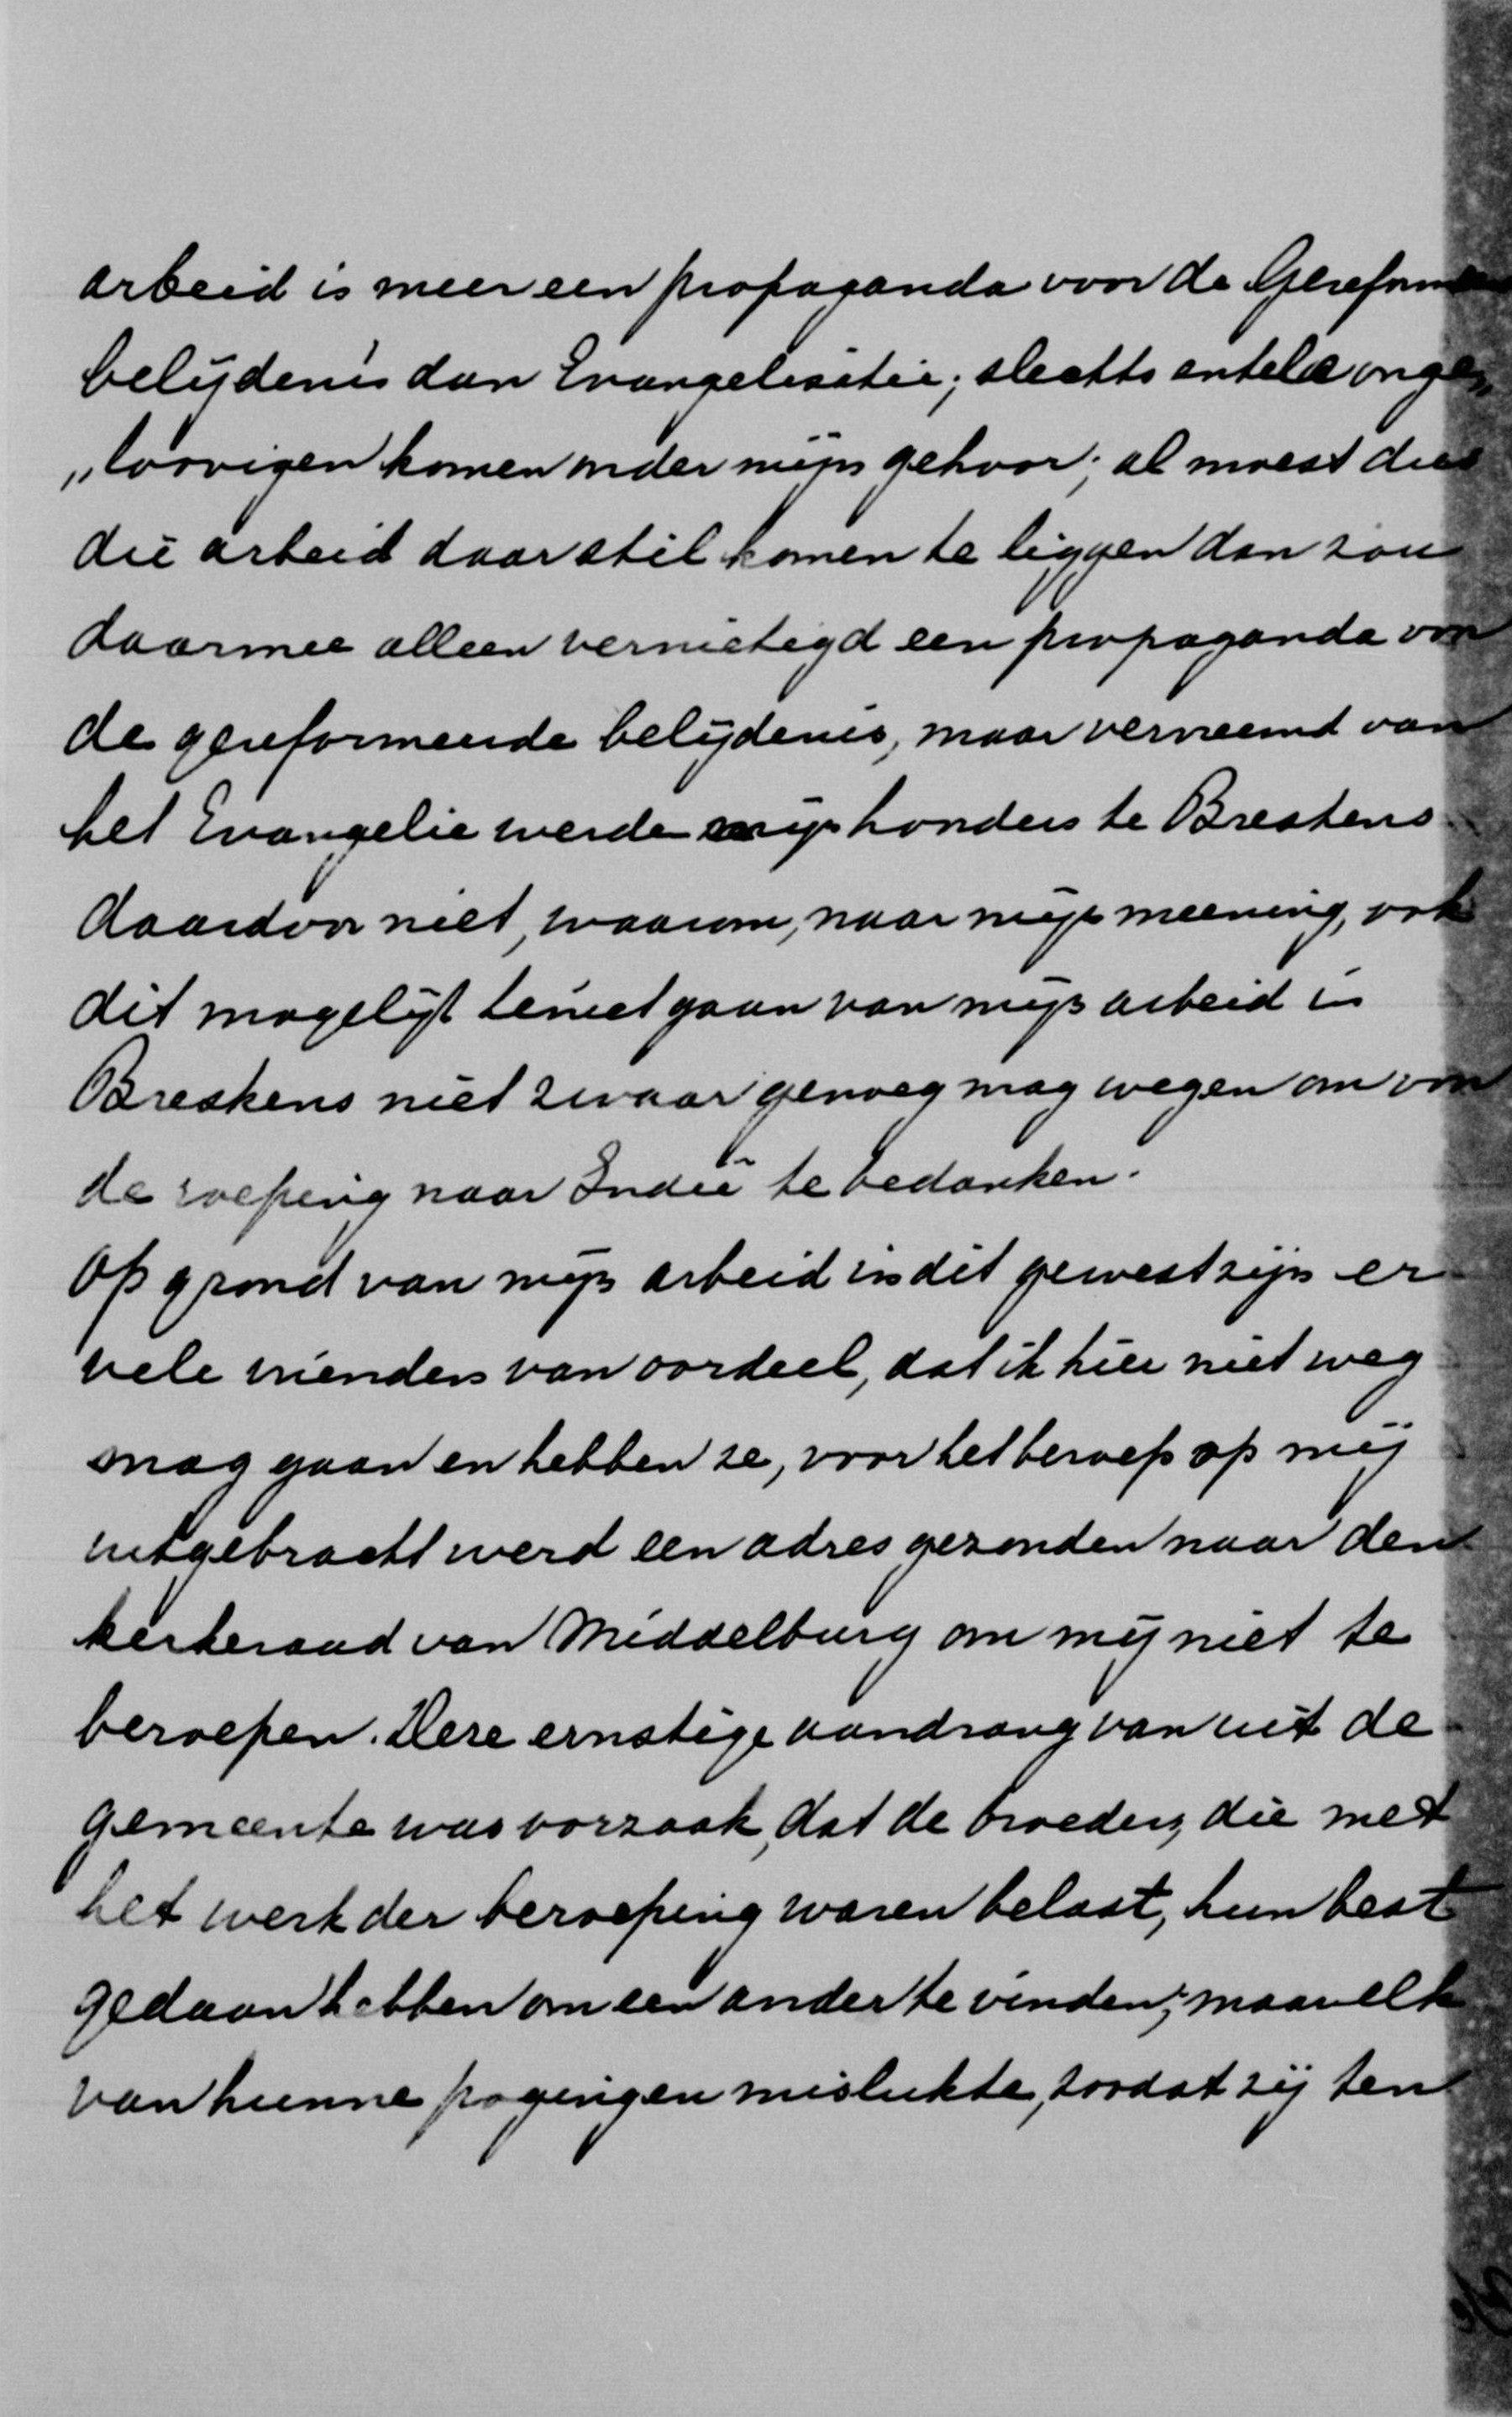 arbeid is meer een propaganda voor de Gereform
belijdenis dan Evangelisatie; slechts enkele onge„
„loovigen komen onder mijn gehoor; al moest dus
die arbeid daar stil komen te liggen dan zou
daarmee alleen vernietigd een propaganda voor
de gereformeerde belijdenis, maar vervreemd van
het Evangelie werden mijn hoorders te Breskens
daardoor niet, waarom, naar mijn meening, ook
dit mogelijk te niet gaan van mijn arbeid in
Breskens niet zwaar genoeg mag wegen om voor
de roeping naar Indië te bedanken.
Op grond van mijn arbeid in dit gewest zijn er
vele vrienden van oordeel, dat ik hier niet weg
mag gaan en hebben ze, voor het beroep op mij
uitgebracht werd een adres gezonden naar den
kerkeraad van Middelburg om mij niet te
beroepen. Deze ernstige aandrang van uit de
gemeente was oorzaak, dat de broeders, die met
het werk der beroeping waren belast, hun best
gedaan hebben om een ander te vinden; maar elk
van hunne pogingen mislukte, zoodat zij ten